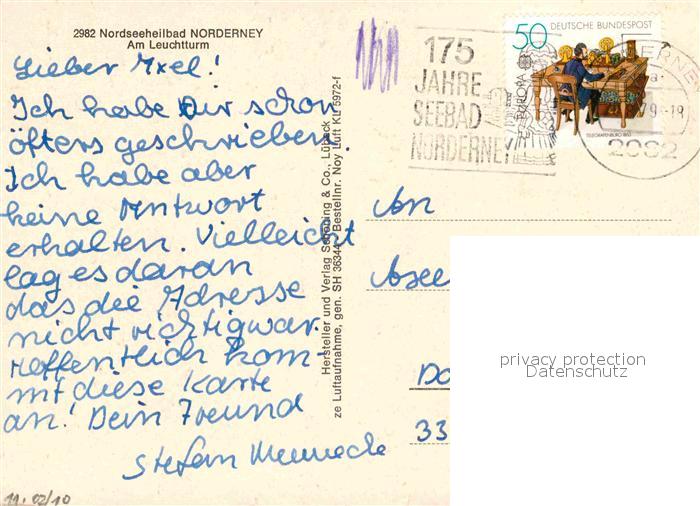 2982 Nordseeheilbad NORDERNEY
Am Leuchtturm
Lieber Axel!
Ich habe Dir schon
öfters geschrieben.
Ich habe aber
keine Antwort
erhalten. Vielleicht
lag es daran
das die Adresse
nicht richtig war.
Hoffentlich kom-
mt diese Karte
an! Dein Freund
Stefan
11.02/10
Hersteller und Verlag Schöning & Co., Lübeck
ze Luftaufnahme, gen. SH 36344 Bestellnr. Noy Luft KLf 5972-f
175
JAHRE
SEEBAD
NORDERNEY
50 DEUTSCHE BUNDESPOST
EUROPA
2982
An
Axel
33
privacy protection
Datenschutz